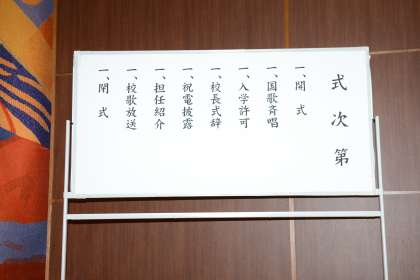 式次第
一、開式
一、国歌斉唱
一、入学許可
一、校長式辞
一、祝電披露
一、担任紹介
一、校歌放送
一、閉式